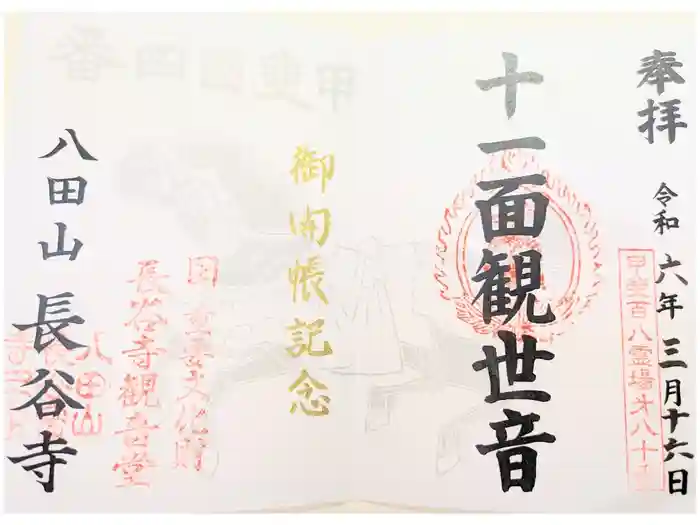 奉拝
令和六年三月十六日
甲斐百八霊場第八十番
十一面観世音
御開帳記念
国重要文化財
長谷寺観音堂
八田山
長谷寺